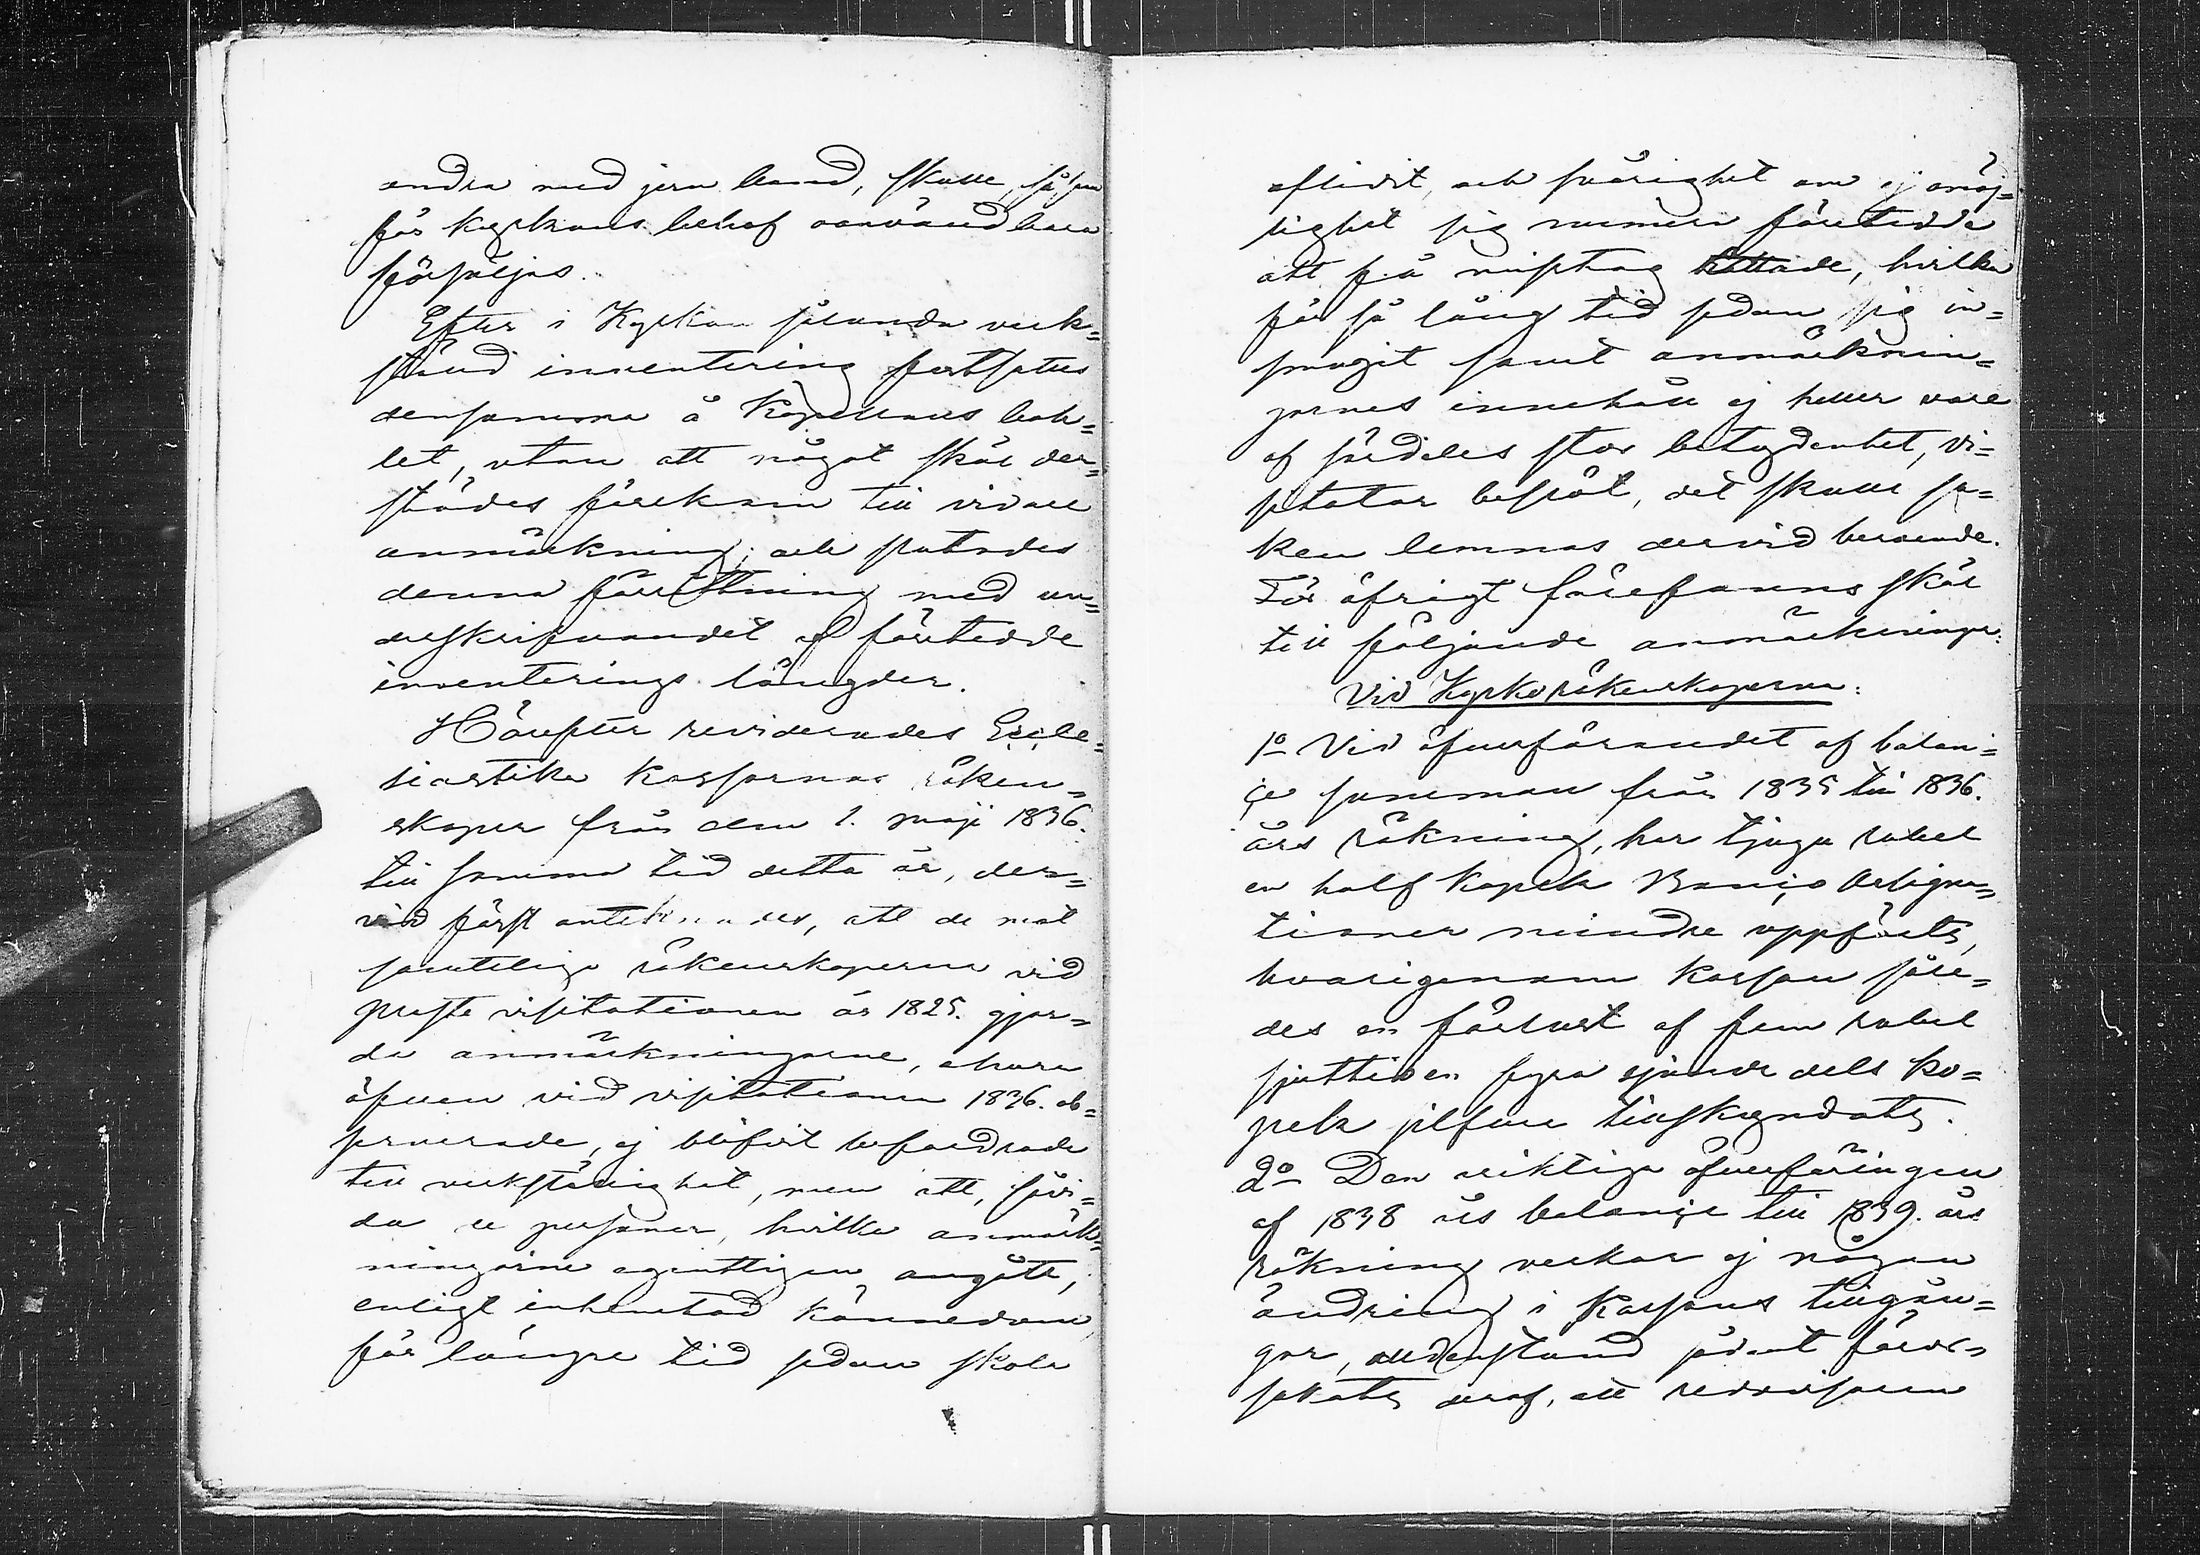 andra med jern band, skulle, såsom
för Kyrkans behof oanvändbara
försäljas.
Efter i Kyrkan sålunda verk=
stäld inventering fortsattes
densamma å Kapellans bohl=
let, utan att något skäl der=
städes förekom till vidare
anmärkning; och slutades
denna förrättning med un=
derskrifvandet af företedde
inventerings längder.
Härefter reviderades Eccle=
siastike Kassornas räken=
skaper från den 1. Maji 1836.
till samma tid detta år, der=
vid först antecknades, att de mot
samtelige räkenskaperna vid
Prosts visitationen år 1825. gjor=
da anmärkningarne, ehuru
äfven vid visitationen 1836. ob=
serverade, ej blifvit befordrade
till verkställighet, men att, såvi=
da de personer, hvilka anmärk=
ningarne egenttligen angått,
enligt inhemtad kännedom,
för längre tid sedan skola
aflidit, och svårighet om ej omöj=
lighet sig numera företedde
att få misstag rättade, hvilka
för så lång tid sedan sig in=
smugit samt anmärknin=
garnes innehåll ej heller vore
af särdeles stor betydenhet, Vi=
sitator beslöt, det skulle sa=
ken lemnas dervid beroende.
För öfrigt förefanns skäl
till följande anmärkningar:
Vid Kyrkoräkenskaperna:
1o Vid öfverförandet af balan=
çe summan från 1835 till 1836.
års räkning, har tjugu rubel
en half kopek Banço Assigna=
tioner mindre uppförts,
hvarigenom Kassan såle=
des en förlust af fem rubel
sjuttio en fyra sjunde dels ko=
pek silfver tillskyndats.
2o Den oriktiga öfverföringen
af 1838 års balançe till 1839. års
räkning verkar ej någon
ändring i Kassans tillgån=
gar, alldenstund sådant föror=
sakats deraf, att redovisaren